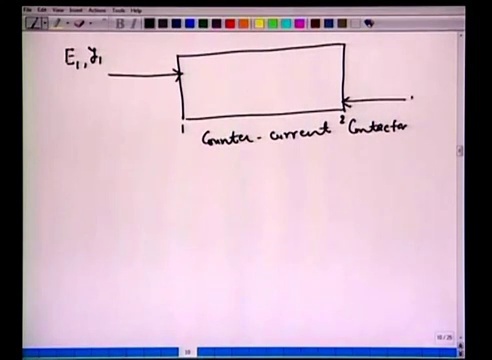 File Edit View Insert Actions Tools Help
E1, y1
1
2
Counter-current Contactor
10/26
10